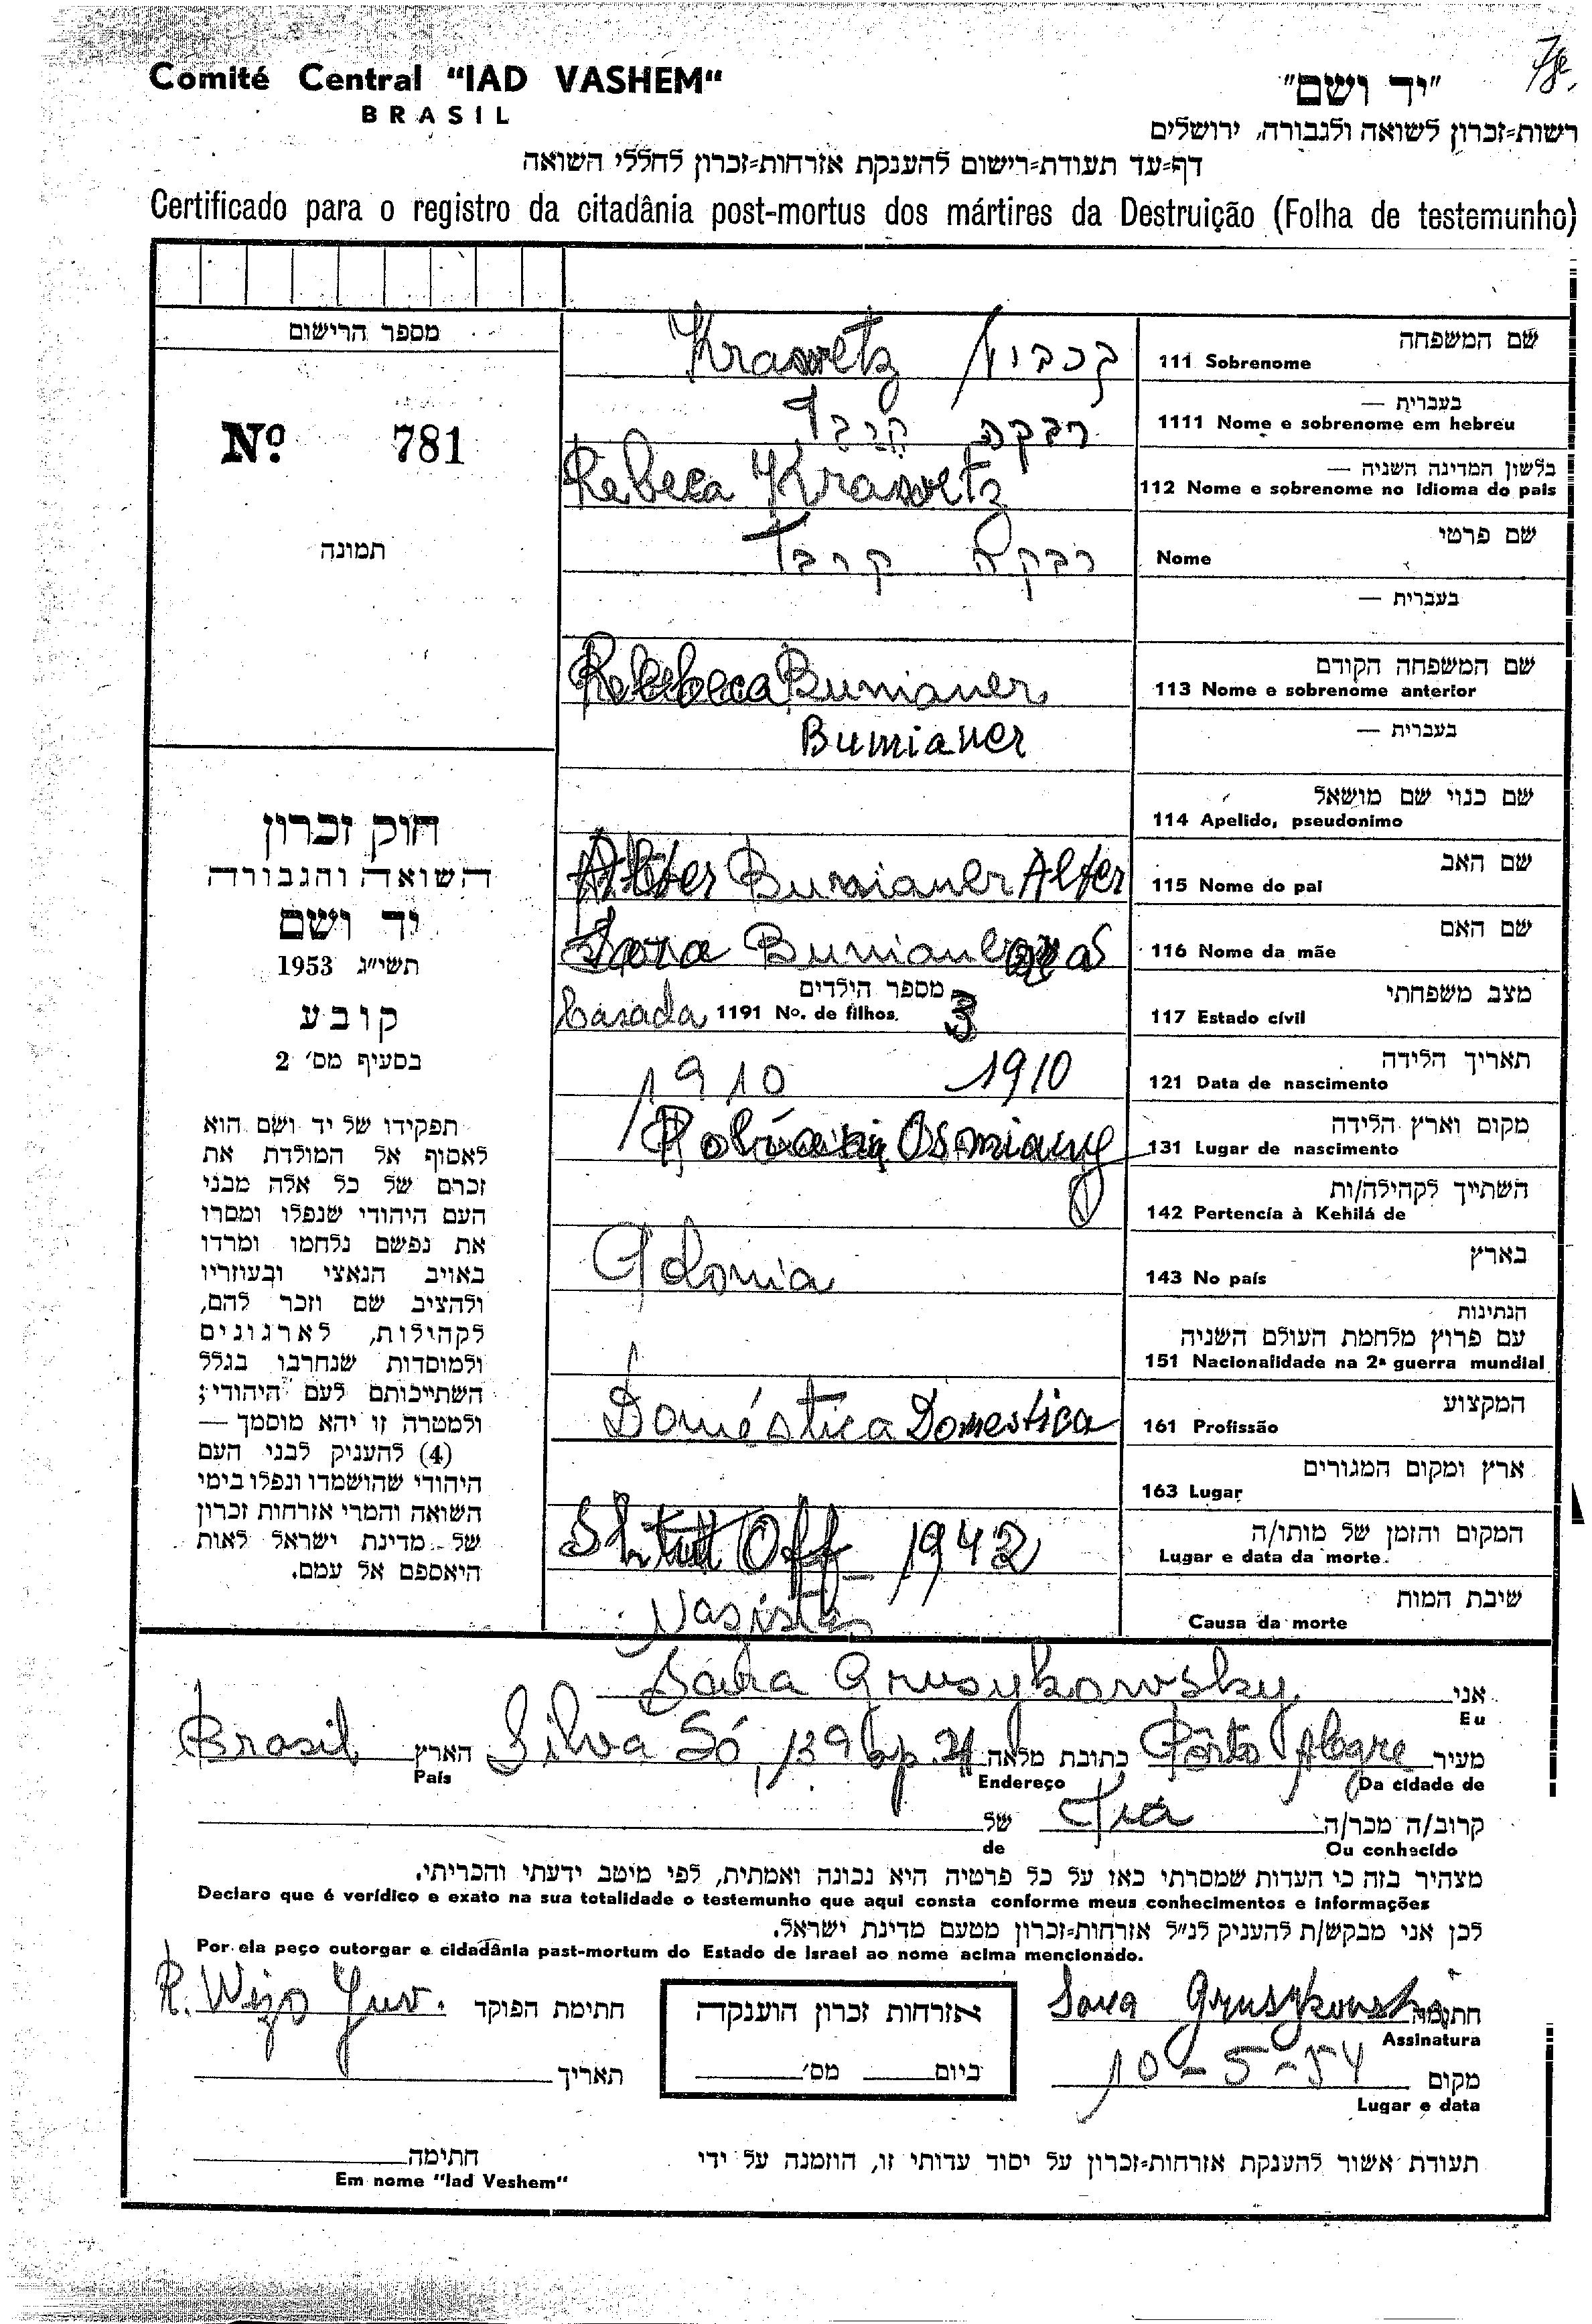 Comité Central "IAD VASHEM"
BRASIL
"יד ושם"
רשות=זכרון לשואה ולגבורה, ירושלים
דף=עד תעודת=רישום להענקת אזרחות=זכרון לחללי השואה
Certificado para o registro da citadânia post-mortus dos mártires da Destruição (Folha de testemunho)
מספר הרישום
Nº 781
תמונה
שם המשפחה
111 Sobrenome
Krawetz
בעברית —
1111 Nome e sobrenome em hebreu
רבקה
בלשון המדינה השניה —
112 Nome e sobrenome no Idioma do pais
Rebeca Krawetz
שם פרטי
Nome
רבקה
בעברית —
שם המשפחה הקודם
113 Nome e sobrenome anterior
Rebeca Bumianer
בעברית —
Bumianer
שם כנוי שם מושאל
114 Apelido, pseudonimo
שם האב
115 Nome do pai
Alter Bumianer Alter
שם האם
116 Nome da mãe
Sara Bumianer
מצב משפחתי
117 Estado cívil
Casada
מספר הילדים
1191 Nº. de filhos. 3
תאריך הלידה
121 Data de nascimento
1910 1910
מקום וארץ הלידה
131 Lugar de nascimento
Osmiany
השתייך לקהילה/ות
142 Pertencía à Kehilá de
בארץ
143 No país
Polonia
הנתינות
עם פרוץ מלחמת העולם השניה
151 Nacionalidade na 2ª guerra mundial
המקצוע
161 Profissão
Doméstica Domestica
ארץ ומקום המגורים
163 Lugar
המקום והזמן של מותו/ה
Lugar e data da morte.
1942
שיבת המות
Causa da morte
Nazistas
חוק זכרון
השואה והגבורה
יד ושם
תשי"ג 1953
קובע
בסעיף מס' 2
תפקידו של יד ושם הוא
לאסוף אל המולדת את
זכרם של כל אלה מבני
העם היהודי שנפלו ומסרו
את נפשם נלחמו ומרדו
באויב הנאצי ובעוזריו
ולהציב שם וזכר להם,
לקהילות, לארגונים
ולמוסדות שנחרבו בגלל
השתייכותם לעם היהודי;
ולמטרה זו יהא מוסמך —
(4) להעניק לבני העם
היהודי שהושמדו ונפלו בימי
השואה והמרי אזרחות זכרון
של מדינת ישראל לאות
היאספם אל עמם.
אני
Eu
Sara Grusykowsky
מעיר Porto Alegre כתובת מלאה Silva Só, 139 ap. 21 הארץ Brasil
Da cidade de Endereço País
קרוב/ה מכר/ה של
Ou conhecido de
מצהיר בזה כי העדות שמסרתי כאן על כל פרטיה היא נכונה ואמתית, לפי מיטב ידעתי והכרתי.
Declaro que é verídico e exato na sua totalidade o testemunho que aqui consta conforme meus conhecimentos e informações
לכן אני מבקש/ת להעניק לנ"ל אזרחות=זכרון מטעם מדינת ישראל.
Por ela peço outorgar e cidadânia past-mortum do Estado de Israel ao nome acima mencionado.
חתימה
Assinatura
אזרחות זכרון הוענקה
ביום מס'
חתימת הפוקד
R. Wizo Juv.
מקום 10-5-54
Lugar e data
תאריך
תעודת אשור להענקת אזרחות=זכרון על יסוד עדותי זו, הוזמנה על ידי
חתימה
Em nome "Iad Veshem"